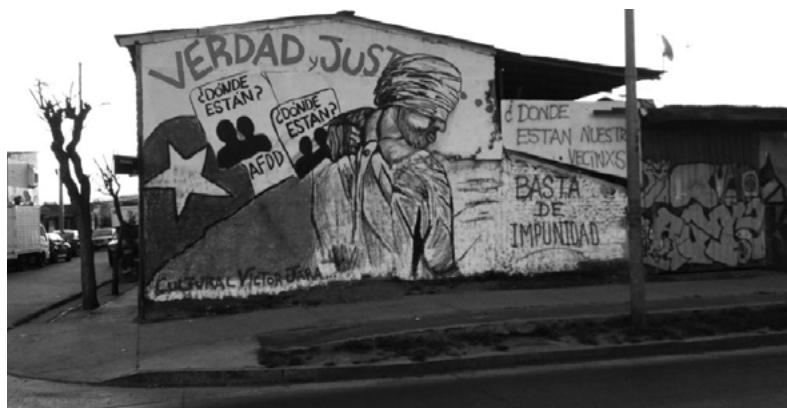 VERDAD y JUST
¿DONDE
ESTÁN?
¿DÓNDE
ESTÁN?
AFDD
¿DONDE
ESTAN NUESTR
VECINXS
BASTA
DE
IMPUNIDAD
CULTURAL VÍCTOR JARA